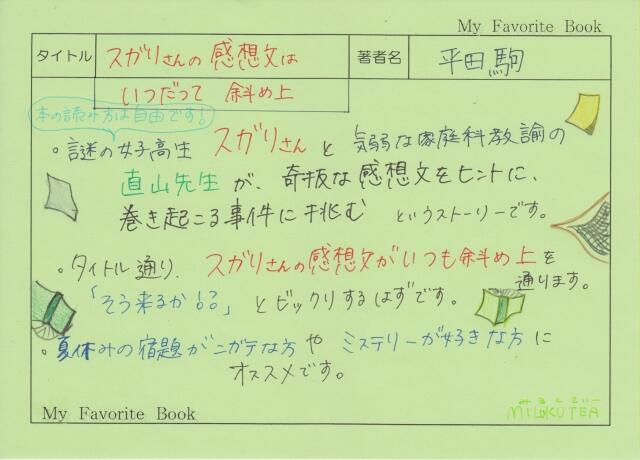 My Favorite Book
タイトル スガリさんの感想文は 著者名 平田駒
いつだって 斜め上
本の読み方は自由です!
。謎の女子高生 スガリさん と 気弱な家庭科教諭の
直山先生 が、奇抜な感想文をヒントに、
巻き起こる事件に挑む というストーリーです。
。タイトル通り、スガリさんの感想文がいつも斜め上を
通ります。
「そう来るか!?」とビックリするはずです。
。夏休みの宿題がニガテな方や ミステリーが好きな方に
オススメです。
My Favorite Book
みるくてぃー
MILUKUTEA